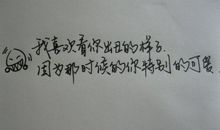 我喜欢看你出丑的样子.
因为那时候的你特别的可爱